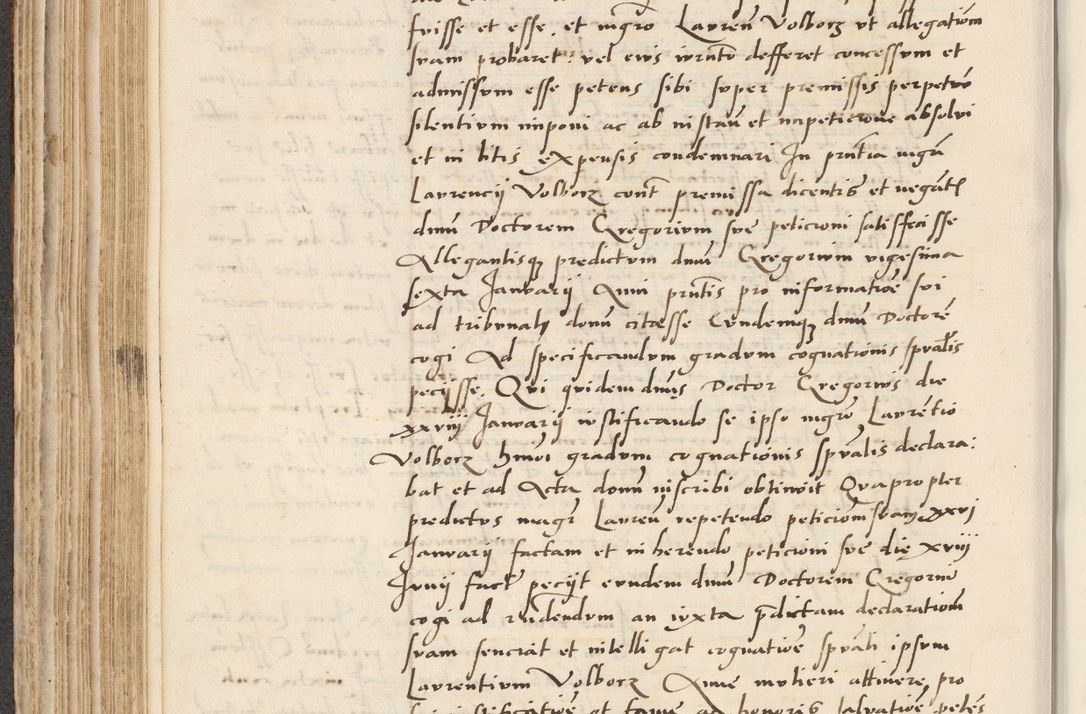 fuisse et esse, et mgro Lauren Volborz vt allegationem
suam probaret: vel eius iurnto defferet concessum et
admissum esse petens sibi super premissis perpetuo
silentium imponi ac ab instan et impeticione absolui
et in litis expensis condemnari In pntia mgri
Laurencij Volborz cont premissa dicentis et negan
dnm Doctorem Gregorium sue peticioni satisffecisse
Allegantisq predictum dnm Gregorium vigesima
sexta Januarij Anni pntis pro informatioe sui
ad tribunal domi citasse Eundemq dnm Doctore
cogi Ad specificandum gradum cognationis spualis
peciisse. Qui quidem dnus Doctor Gregorius die
xxviij Januarij iustificando se ipso mgro Laurentio
Volborz hmoi gradum cognationis spualis declara:
bat et ad Acta domi inscribi obtinuit Quapropter
predictus magr Lauren repetendo peticionem suam xxvi
Januarij factam et inherendo peticioni sue die xviij
Junij fact peciit eundem dnm Doctorem Gregorium
cogi ad rndendum an iuxta pdictam declarationem
suam senciat et intelligat cognatioe spuali ipsum
Laurentium Volborz Anne mulieri attinere, pro